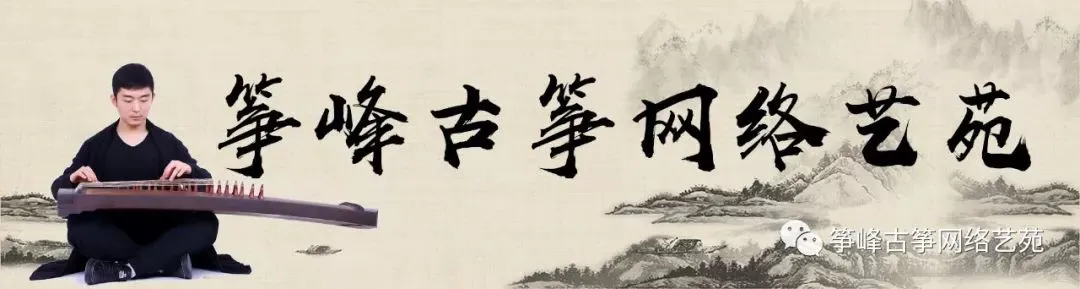 筝峰古筝网络艺苑
筝峰古筝网络艺苑